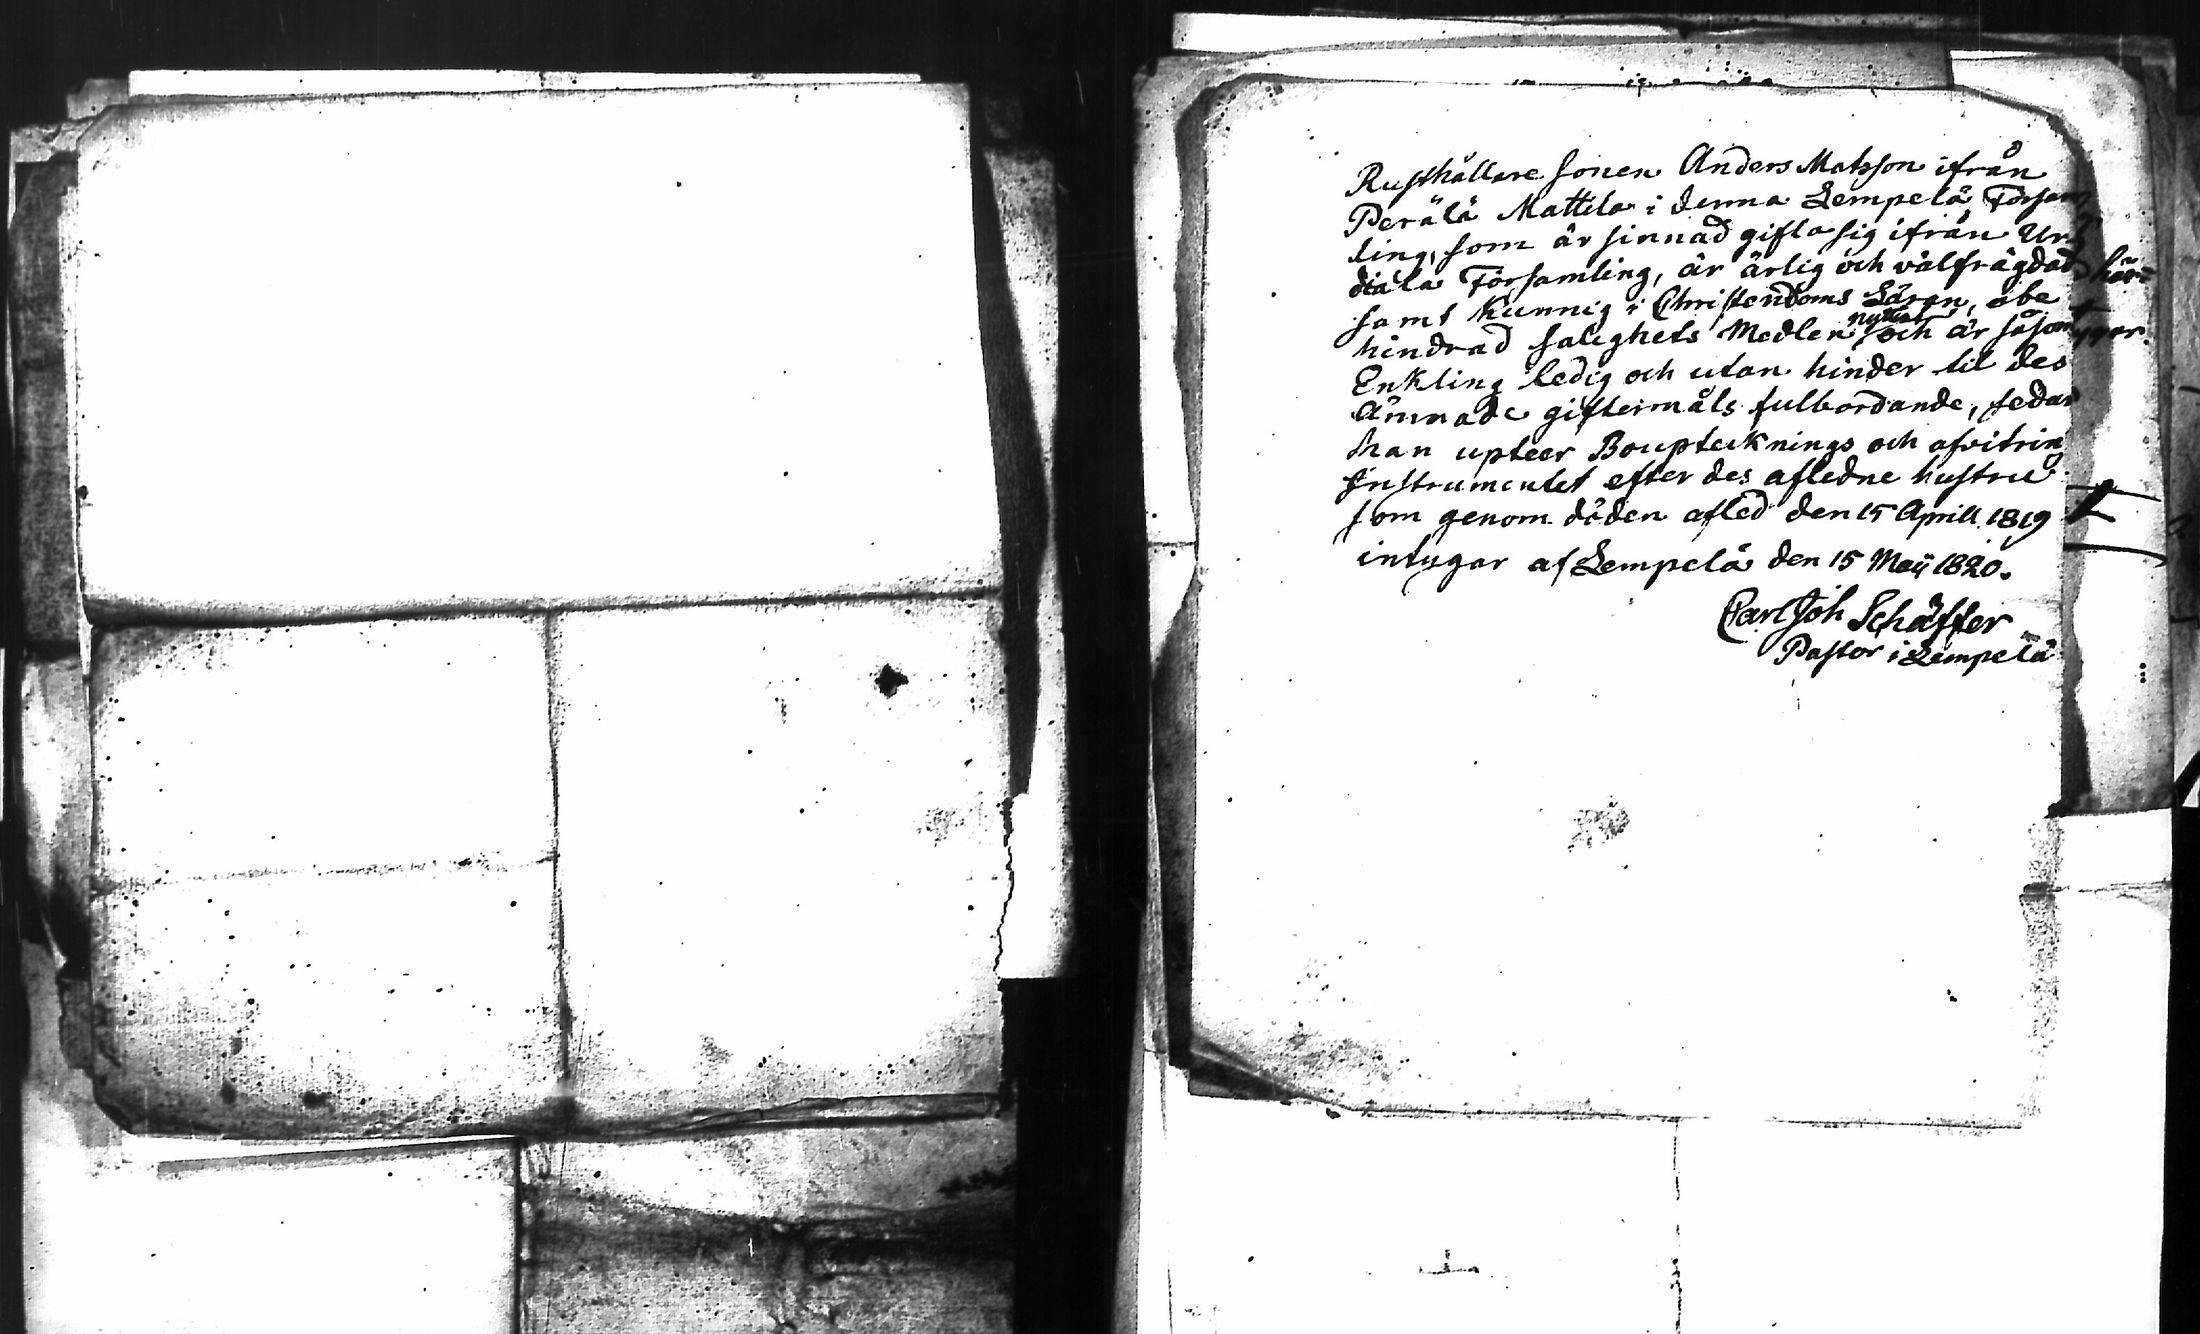 Rusthållare sonen Anders Matsson ifrån
Perälä Mattila i denna Lempelä Försam
ling, som är sinnad gifta sig ifrån Ur
diala Församling, är ärlig och välfrägdad
samt kunnig i Christendoms Läran, obe
hindrad salighets Medlen nyttjat och är såsom
Enkling ledig och utan hinder til des
ämnade giftermåls fulbordande, sedan
han upteer Boupteknings och afvitrin
Instrumentet efter des afledne hustru
som genom döden afled den 15 Aprill 1819
intygar af Lempelä den 15 Maij 1820.
Carl Joh Schäffer
Pastor i Lempelä